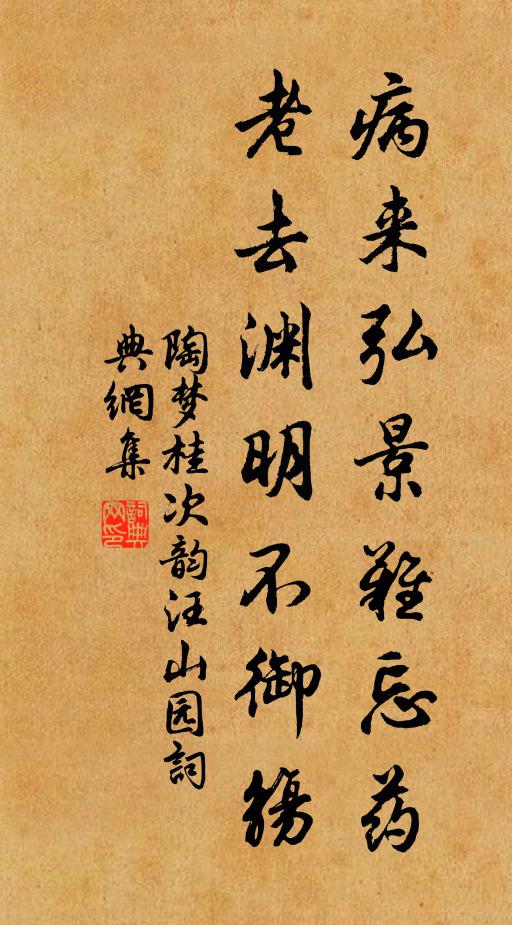 病来弘景难忘药
老去渊明不御觞
陶梦桂次韵汪山园詞
典網集
詞典网印